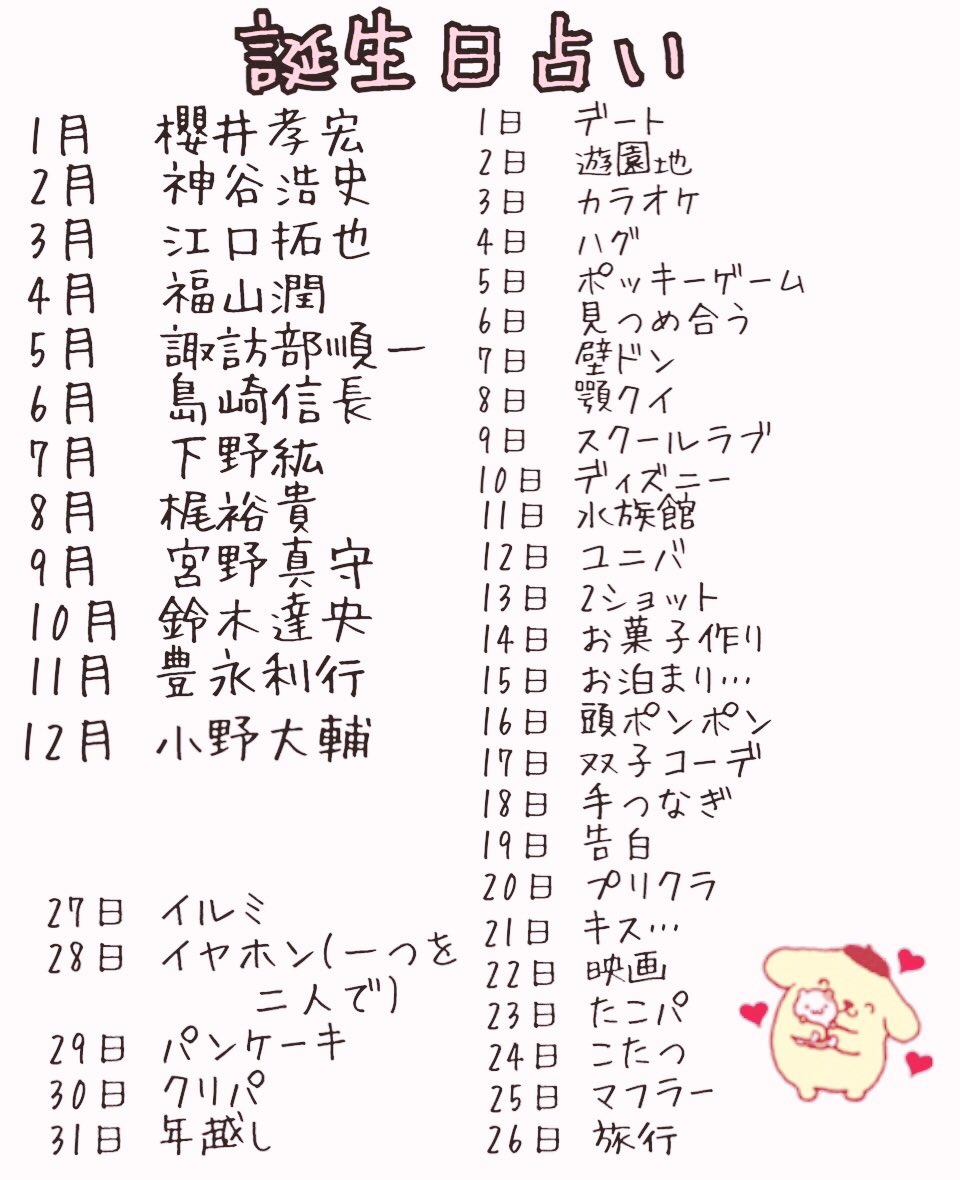 誕生日占い
1月 櫻井孝宏
2月 神谷浩史
3月 江口拓也
4月 福山潤
5月 諏訪部順一
6月 島崎信長
7月 下野紘
8月 梶裕貴
9月 宮野真守
10月 鈴木達央
11月 豊永利行
12月 小野大輔
1日 デート
2日 遊園地
3日 カラオケ
4日 ハグ
5日 ポッキーゲーム
6日 見つめ合う
7日 壁ドン
8日 顎クイ
9日 スクールラブ
10日 ディズニー
11日 水族館
12日 ユニバ
13日 2ショット
14日 お菓子作り
15日 お泊まり…
16日 頭ポンポン
17日 双子コーデ
18日 手つなぎ
19日 告白
20日 プリクラ
21日 キス…
22日 映画
23日 たこパ
24日 こたつ
25日 マフラー
26日 旅行
27日 イルミ
28日 イヤホン(一つを
二人で)
29日 パンケーキ
30日 クリパ
31日 年越し